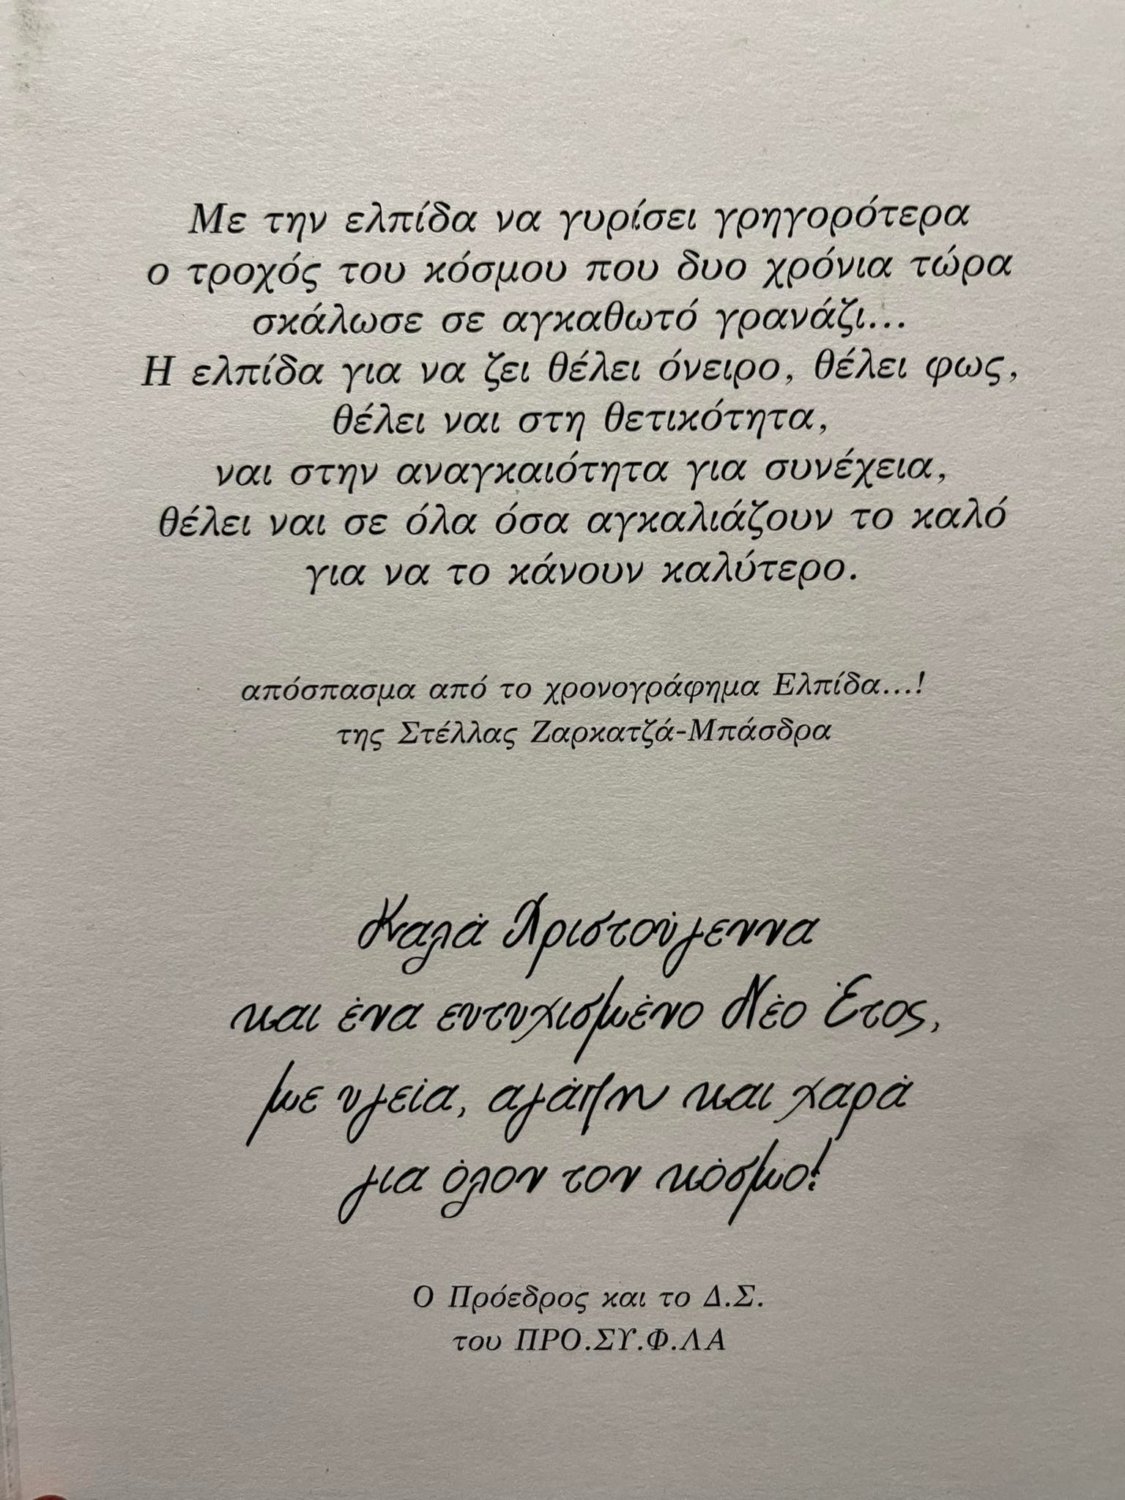 Με την ελπίδα να γυρίσει γρηγορότερα
ο τροχός του κόσμου που δυο χρόνια τώρα
σκάλωσε σε αγκαθωτό γρανάζι...
Η ελπίδα για να ζει θέλει όνειρο, θέλει φως,
θέλει ναι στη θετικότητα,
ναι στην αναγκαιότητα για συνέχεια,
θέλει ναι σε όλα όσα αγκαλιάζουν το καλό
για να το κάνουν καλύτερο.
απόσπασμα από το χρονογράφημα Ελπίδα...!
της Στέλλας Ζαρκατζά-Μπάσδρα
Καλά Χριστούγεννα
και ένα ευτυχισμένο Νέο Έτος,
με υγεία, αγάπη και χαρά
για όλον τον κόσμο!
Ο Πρόεδρος και το Δ.Σ.
του ΠΡΟ.ΣΥ.Φ.ΛΑ